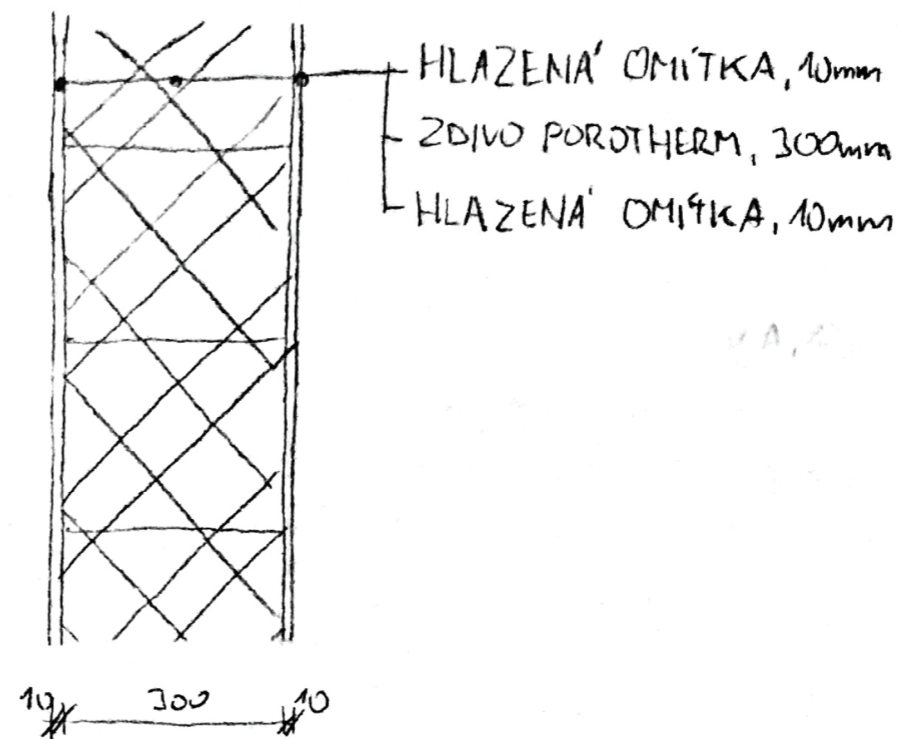 HLAZENÁ OMÍTKA, 10mm
ZDIVO POROTHERM, 300mm
HLAZENÁ OMÍTKA, 10mm
10 300 10